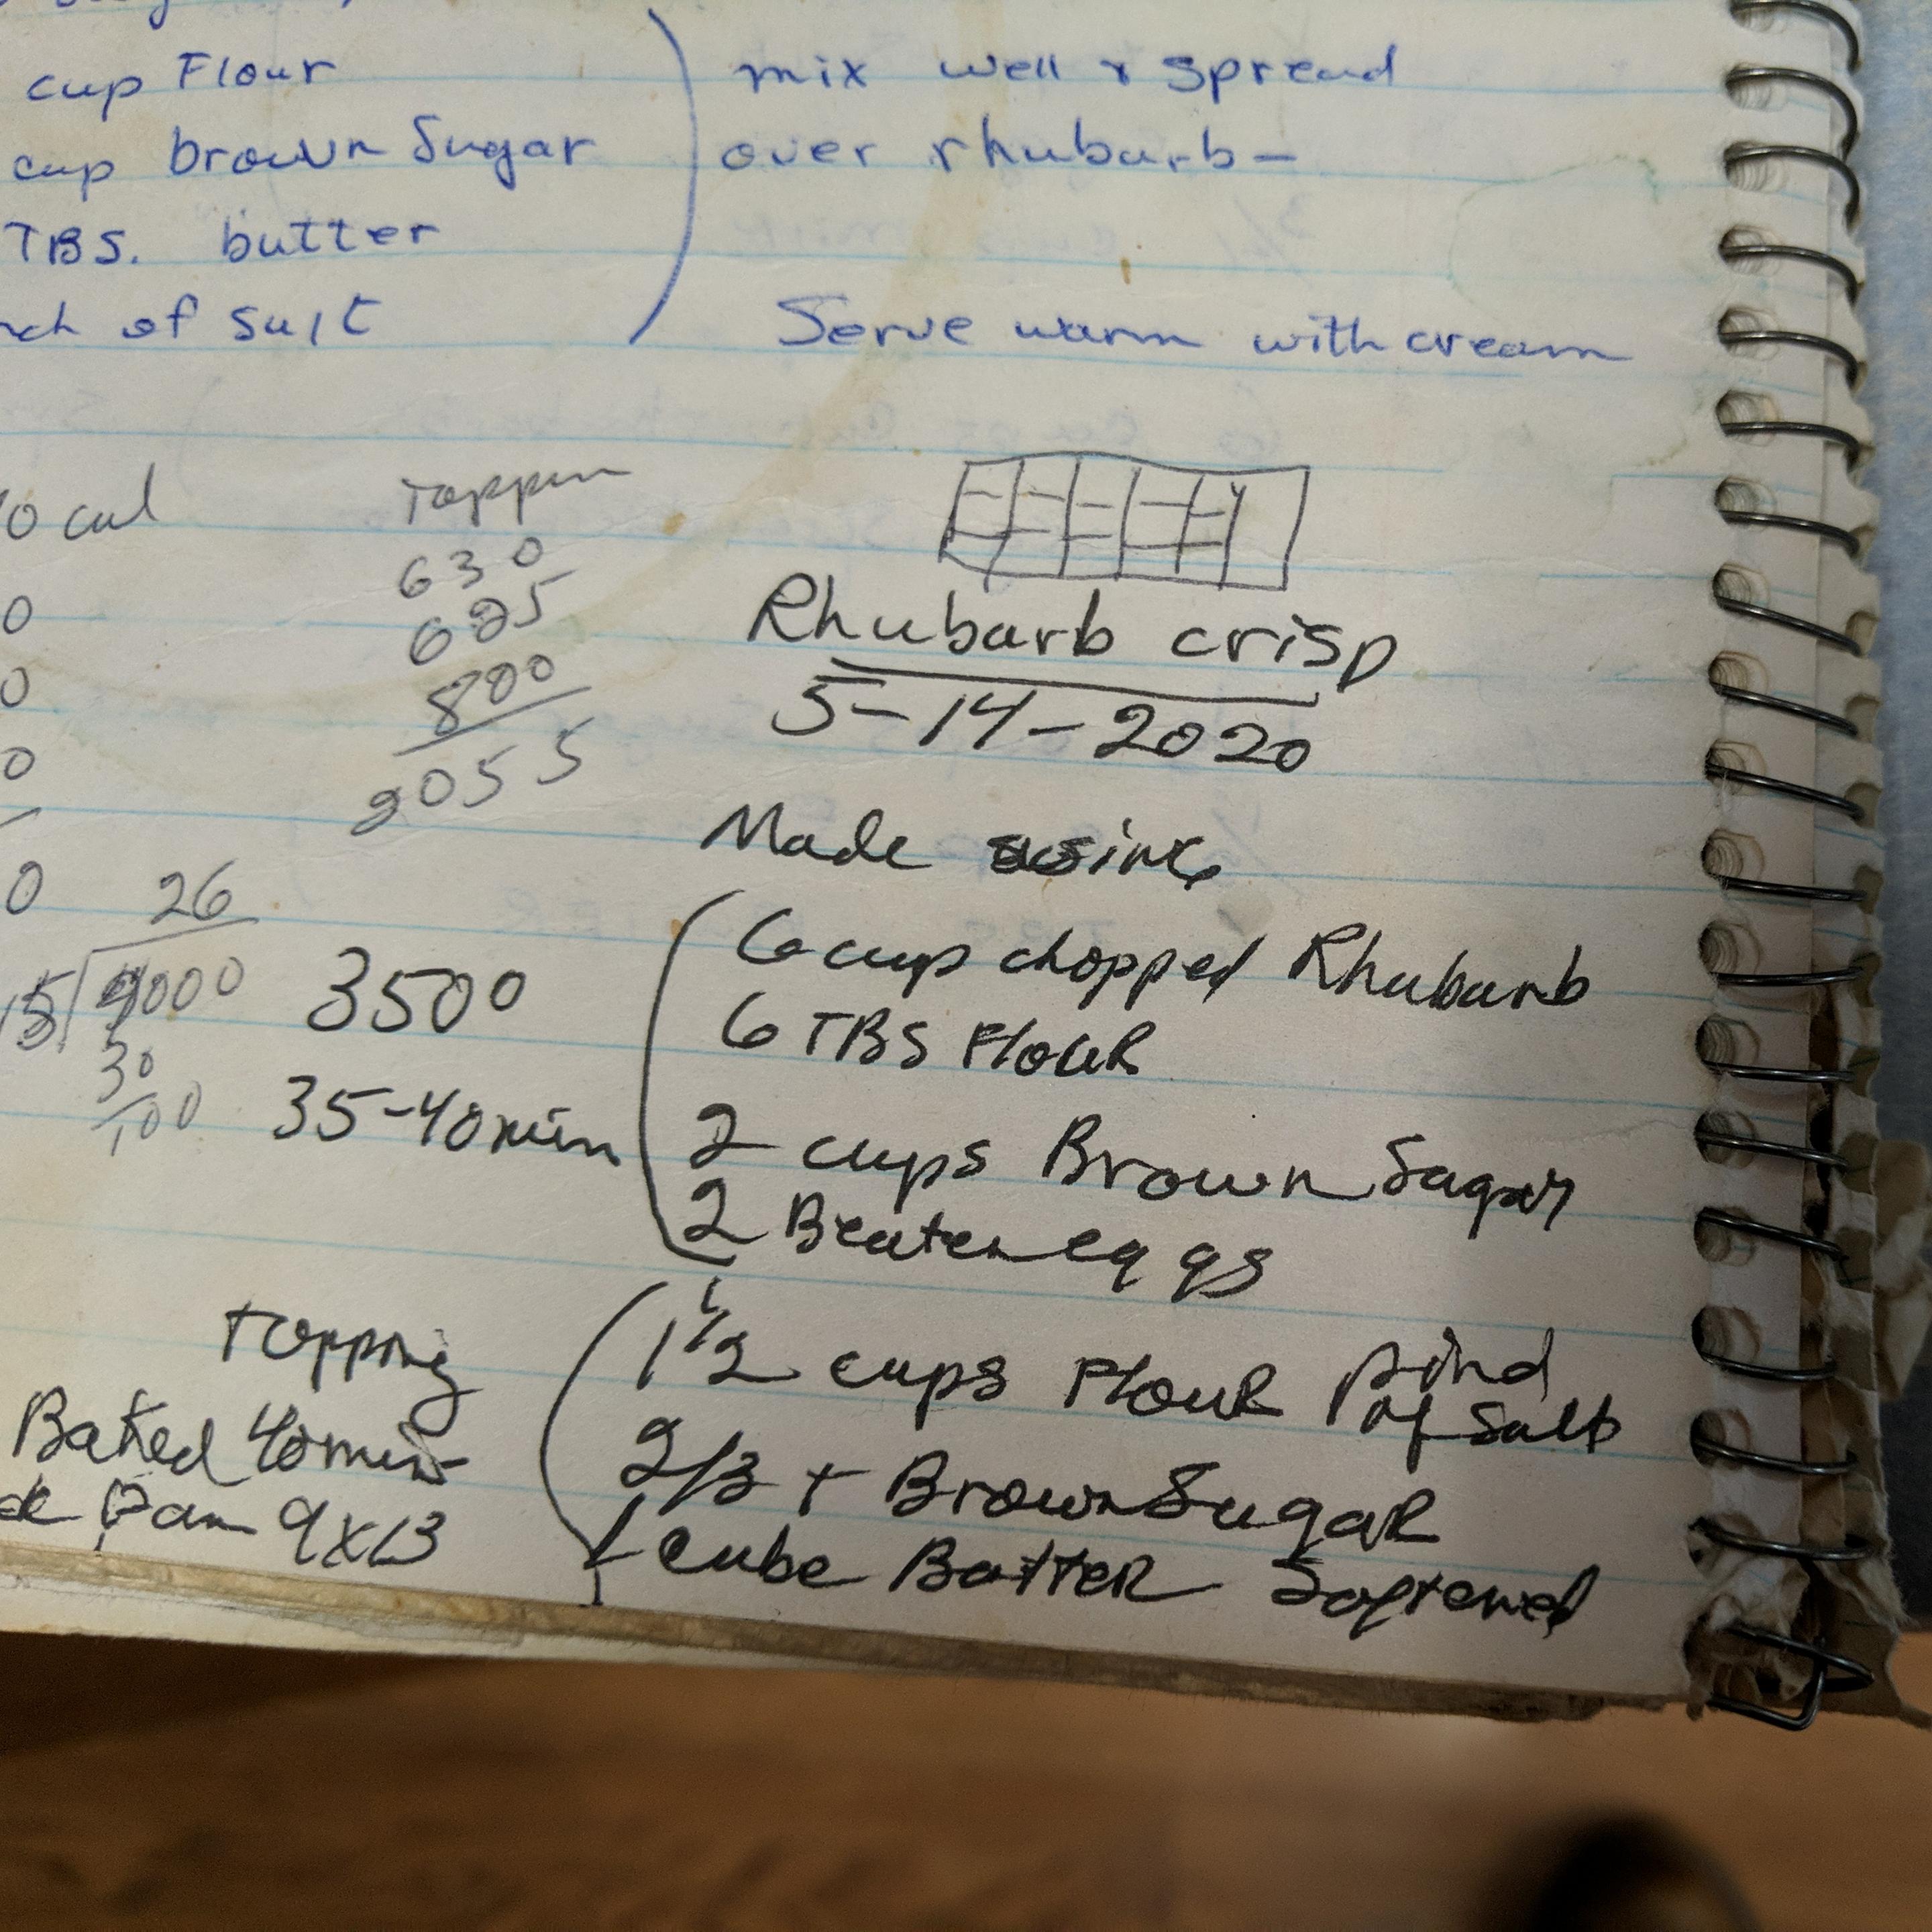 cup Flour
cup brown Sugar
TBS. butter
of salt
mix well & spread
over rhubarb-
Serve warm with cream
0 cal
0
0
0
0
Toppin
630
625
800
2055
26
15 4000
30
100
3500
35-40 min
Rhubarb crisp
5-14-2020
Made using
6 cup chopped Rhubarb
6 TBS Flour
2 cups Brown Sugar
2 Beaten eggs
Topping
1 1/2 cups Flour pind
of Salt
2/3 + Brown Sugar
1 cube Butter Softened
Baked 40 min
Pan 9x13